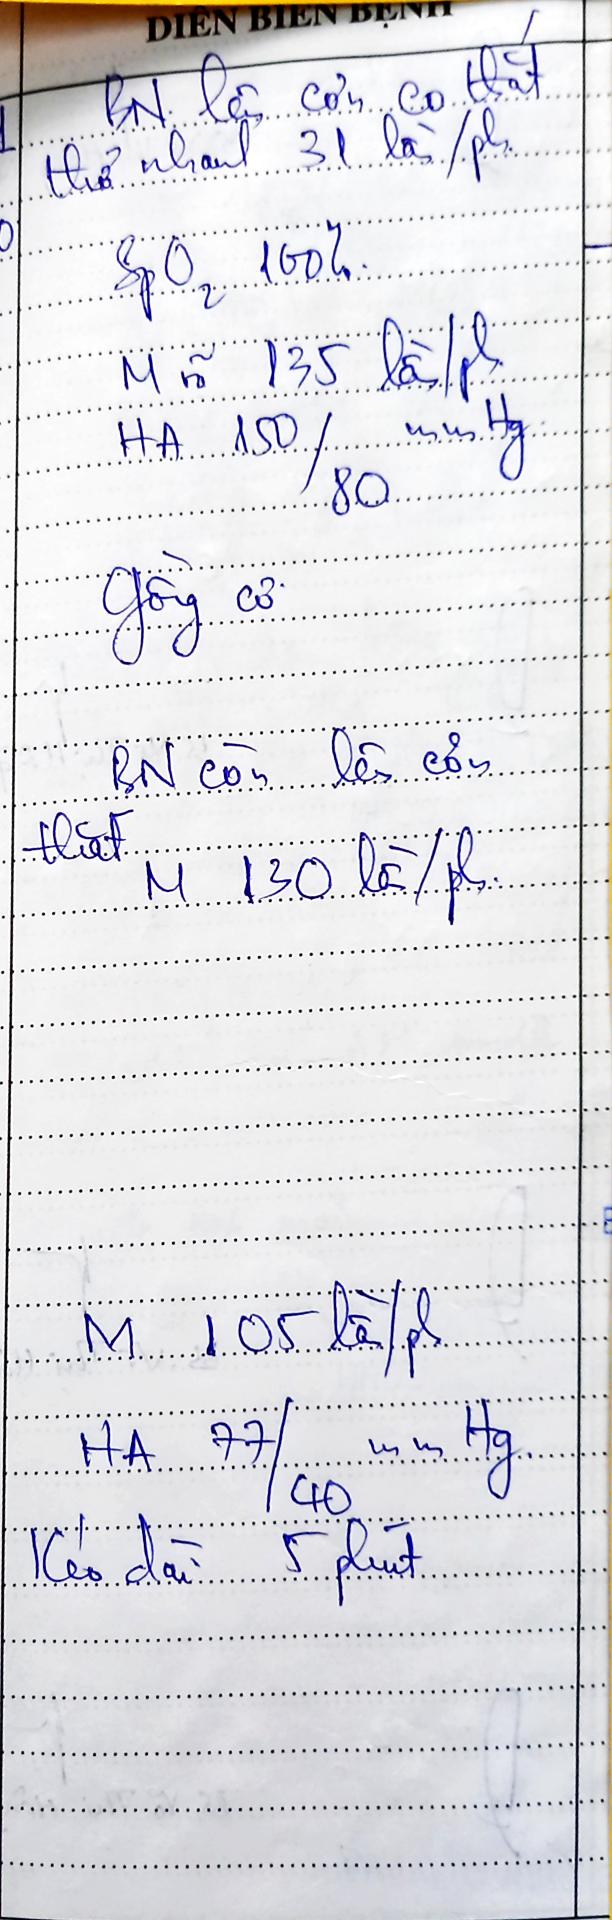 DIỄN BIẾN BỆNH
BN lên cơn co thắt
thở nhanh 31 lần/ph
SpO2 100%
M rõ 135 lần/ph
HA 150/80 mmHg
Gồng cơ
BN còn lên cơn
thắt
M 130 lần/ph
M 105 lần/ph
HA 77/40 mmHg
Kéo dài 5 phút